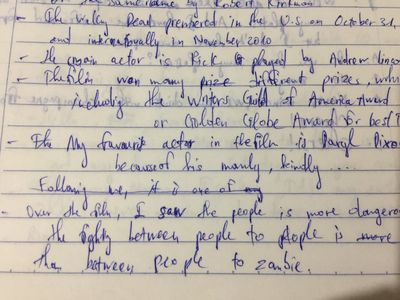 the same name by Robert Kirkman
- The walking Dead premiered in the U.S on October 31,
and internationally in November 2010
- The main actor is Rick played by Andrew Linco
- The film won many prize different prizes, whi
including the Writers Guild of America Award
or Golden Globe Award for best T
- The My favourite actor in the film is Daryl Dixo
because of his manly, kindly ....
Following me, it is one of my
- Over the film, I saw the people is more dangero
the fighty between people to people is more
than between people to zombie.